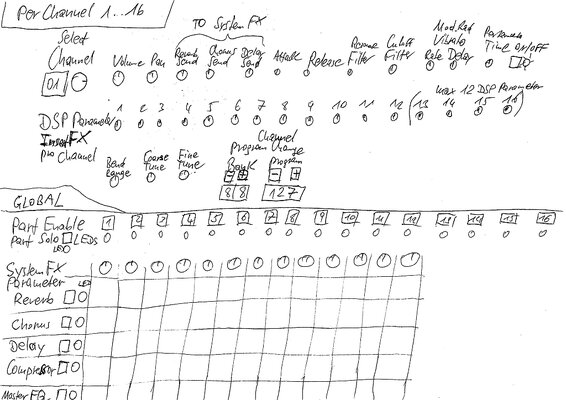 Per Channel 1...16
TO System FX
Select Channel
01
Volume Pan Reverb Send Chorus Send Delay Send Attack Release Resonance Filter Cutoff Filter Mod.Rad Vibrato Rate Delay Portamento Time ON/OFF
DSP Parameter 1 2 3 4 5 6 7 8 9 10 11 12 (13 14 15 16)
max 12 DSP Parameter
Insert FX
pro Channel
Bend Range Coarse Tune Fine Tune
Channel
Program Change
Bank Program
- + - +
88 127
GLOBAL
Part Enable 1 2 3 4 5 6 7 8 9 10 11 12 13 14 15 16
Part Solo LEDs
LED
System FX
Parameter LED
Reverb
Chorus
Delay
Compressor
Master EQ